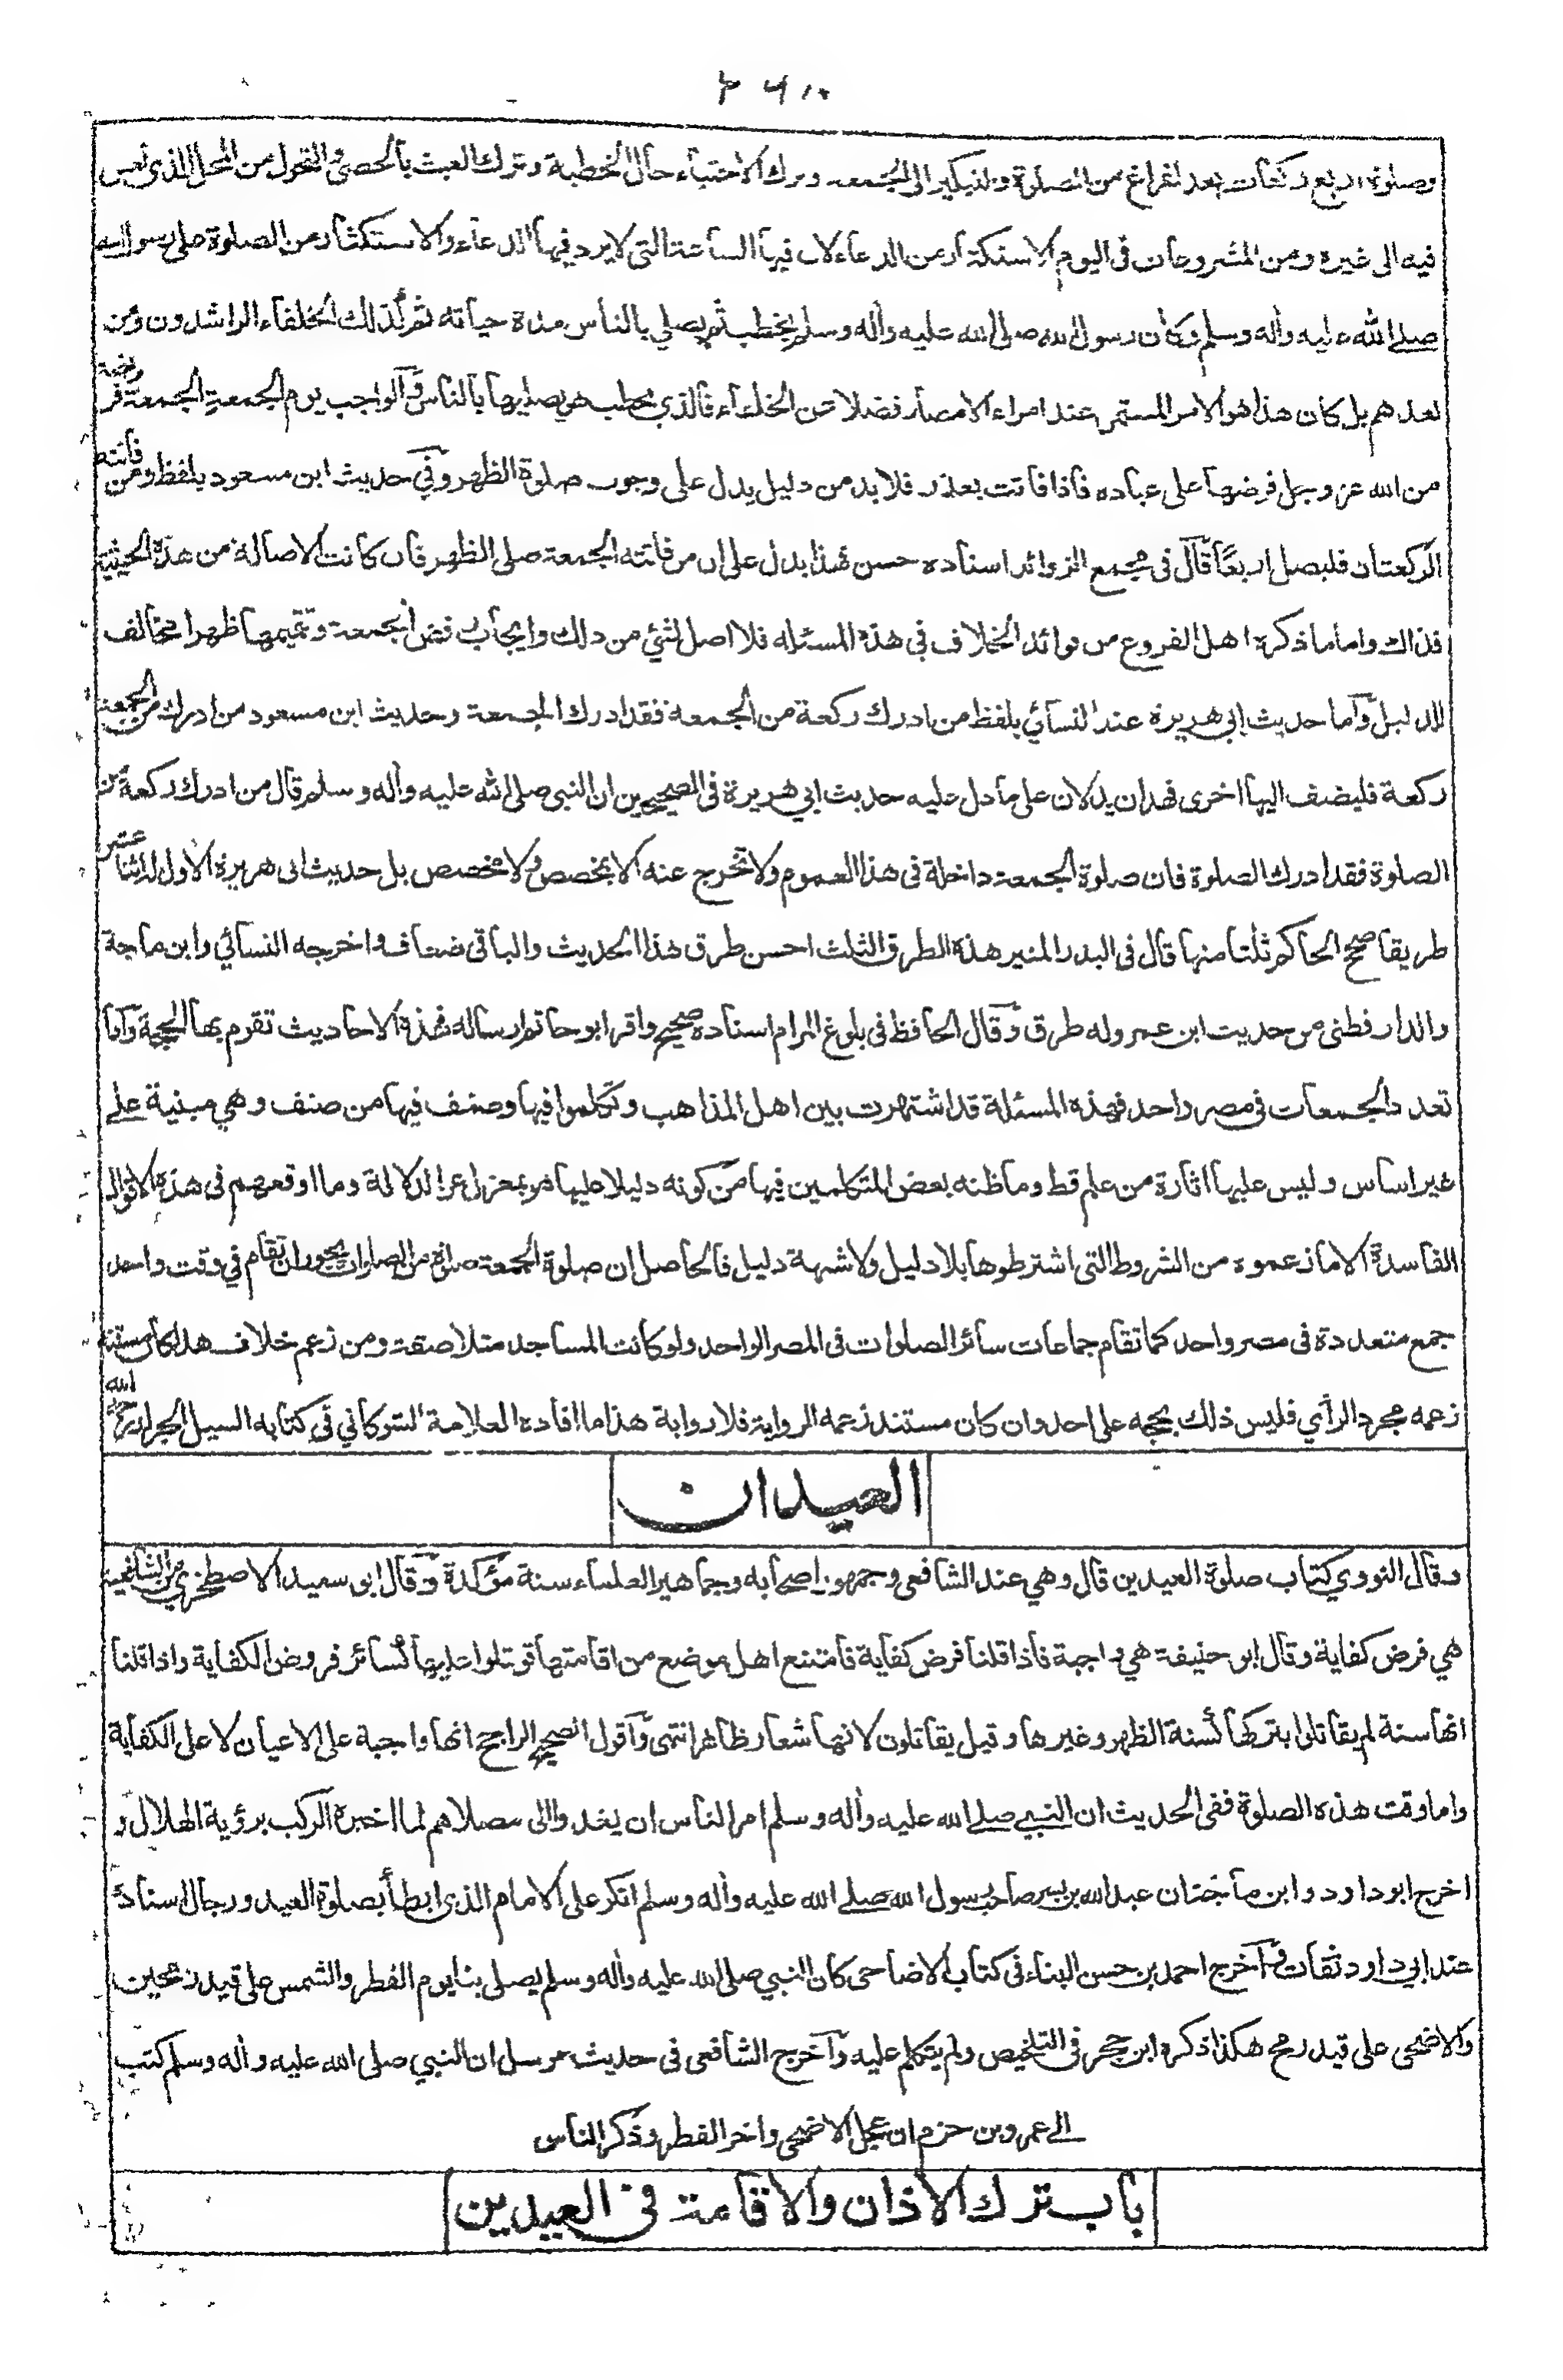 وصلوة اربع ركعات بعد الفراغ من الصلوة والتبكير الى الجمعة وترك الاحتباء حال الخطبة وترك العبث بالحصى والتحول من المحل الذى نعس
فيه الى غيره ومن المشروعات فى اليوم الاستكثار من الدعاء لان فيها الساعة التى لا يرد فيها الدعاء والاستكثار من الصلوة على رسول الله
صلے الله عليه وأله وسلم وكان رسول الله صلى الله عليه وأله وسلم يخطب ثم يصلي بالناس مدة حياته ثم كذلك الخلفاء الراشدون ومن
بعدهم بل كان هذا هو الامر المستمر عند امراء الامصار فضلا عن الخلفاء فالذي يخطب هو يصليها بالناس والواجب يوم الجمعة الجمعة فريضة
من الله عز وجل فرضها على عباده فاذا فاتت بعذر فلا بد من دليل يدل على وجوب صلوة الظهر وفي حديث ابن مسعود بلفظ ومن فاتته
الركعتان فليصل اربعًا قال فى مجمع الزوائد اسناده حسن فهذا يدل على ان من فاتته الجمعة صلى الظهر فان كانت الاصالة من هذه الحيثية
فذاك واما ما ذكره اهل الفروع من فوائد الخلاف في هذه المسئله فلا اصل لشئي من ذلك وايجاب فض الجمعة وتتميمها ظهرا مخالف
للدليل وأما حديث ابي هريرة عند النسائي بلفظ من ادرك ركعة من الجمعة فقد ادرك الجمعة وحديث ابن مسعود من ادرك من الجمعة
ركعة فليضف اليها اخرى فهذان يدلان على ما دل عليه حديث ابي هريرة فى الصحيحين ان النبى صلى الله عليه وأله وسلم قال من ادرك ركعة من
الصلوة فقد ادرك الصلوة فان صلوة الجمعة داخلة فى هذا العموم ولا تخرج عنه الا بمخصص ولا مخصص بل حديث ابى هريرة الاول له اثنا عشر
طريقا صحح الحاكم ثلثا منها قال فى البدر المنير هذة الطرق الثلث احسن طرق هذا الحديث والباقى ضعاف واخرجه النسائي وابن ماجة
والدارقطنى من حديث ابن عمر وله طرق وقال الحافظ فى بلوغ المرام اسناده صحيح واقر ابو حاتم ارساله فهذه الاحاديث تقوم بها الحجة وأما
تعدد الجمعات فى مصر واحد فهذه المسئلة قد اشتهرت بين اهل المذاهب وتكلموا فيها وصنف فيها من صنف وهي مبنية علے
غير اساس وليس عليها اثارة من علم قط وما ظنه بعض المتكلمين فيها من كونه دليلا عليها هو بمعزل عن الدلالة وما اوقعهم فى هذه الاقوال
الفاسدة الا ما زعموه من الشروط التى اشترطوها بلا دليل ولا شبهة دليل فالحاصل ان صلوة الجمعة صلوة من الصلوات يجوز ان تقام في وقت واحد
جمع متعددة فى مصر واحد كما تقام جماعات سائر الصلوات فى المصر الواحد ولو كانت المساجد متلاصقة ومن زعم خلاف هذا كان مستند
زعمه مجرد الرأي فليس ذلك بحجه على احد وان كان مستند زعمه الرواية فلا رواية هذا ما افاده العلامة الشوكاني في كتابه السيل الجرار رحمه الله
العيدان
وقال النووي كتاب صلوة العيدين قال وهي عند الشافعى وجمهور اصحابه وجماهير العلماء سنة مؤكدة وقال ابو سعيد الاصطخري من الشافعية
هي فرض كفاية وقال ابو حنيفة هي واجبة فاذا قلنا فرض كفاية فامتنع اهل موضع من اقامتها قوتلوا عليها كسائر فروض الكفاية واذا قلنا
انها سنة لم يقاتلوا بتركها كسنة الظهر وغيرها وقيل يقاتلون لانها شعار ظاهر انتهى وأقول الصحيح الراجح انها واجبة على الاعيان لا على الكفاية
واما وقت هذه الصلوة ففى الحديث ان النبيے صلے الله عليه وأله وسلم امر الناس ان يغدوا الى مصلاهم لما اخبره الركب برؤية الهلال و
اخرج ابو داود وابن ماجة ان عبد الله بن بسر صاحب رسول الله صلے الله عليه وأله وسلم انكر على الامام الذى ابطأ بصلوة العيد ورجال اسناده
عند ابي داود ثقات وأخرج احمد بن حسن البناء فى كتاب الاضاحى كان النبي صلى الله عليه وأله وسلم يصلى بنا يوم الفطر والشمس على قيد رمحين
والاضحى على قيد رمح هكذا ذكره ابن حجر فى التلخيص ولم يتكلم عليه وأخرج الشافعى فى حديث مرسل ان النبي صلى الله عليه وأله وسلم كتب
الے عمرو بن حزم ان عجل الاضحى واخر الفطر وذكر الناس
باب ترك الأذان والاقامة فى العيدين